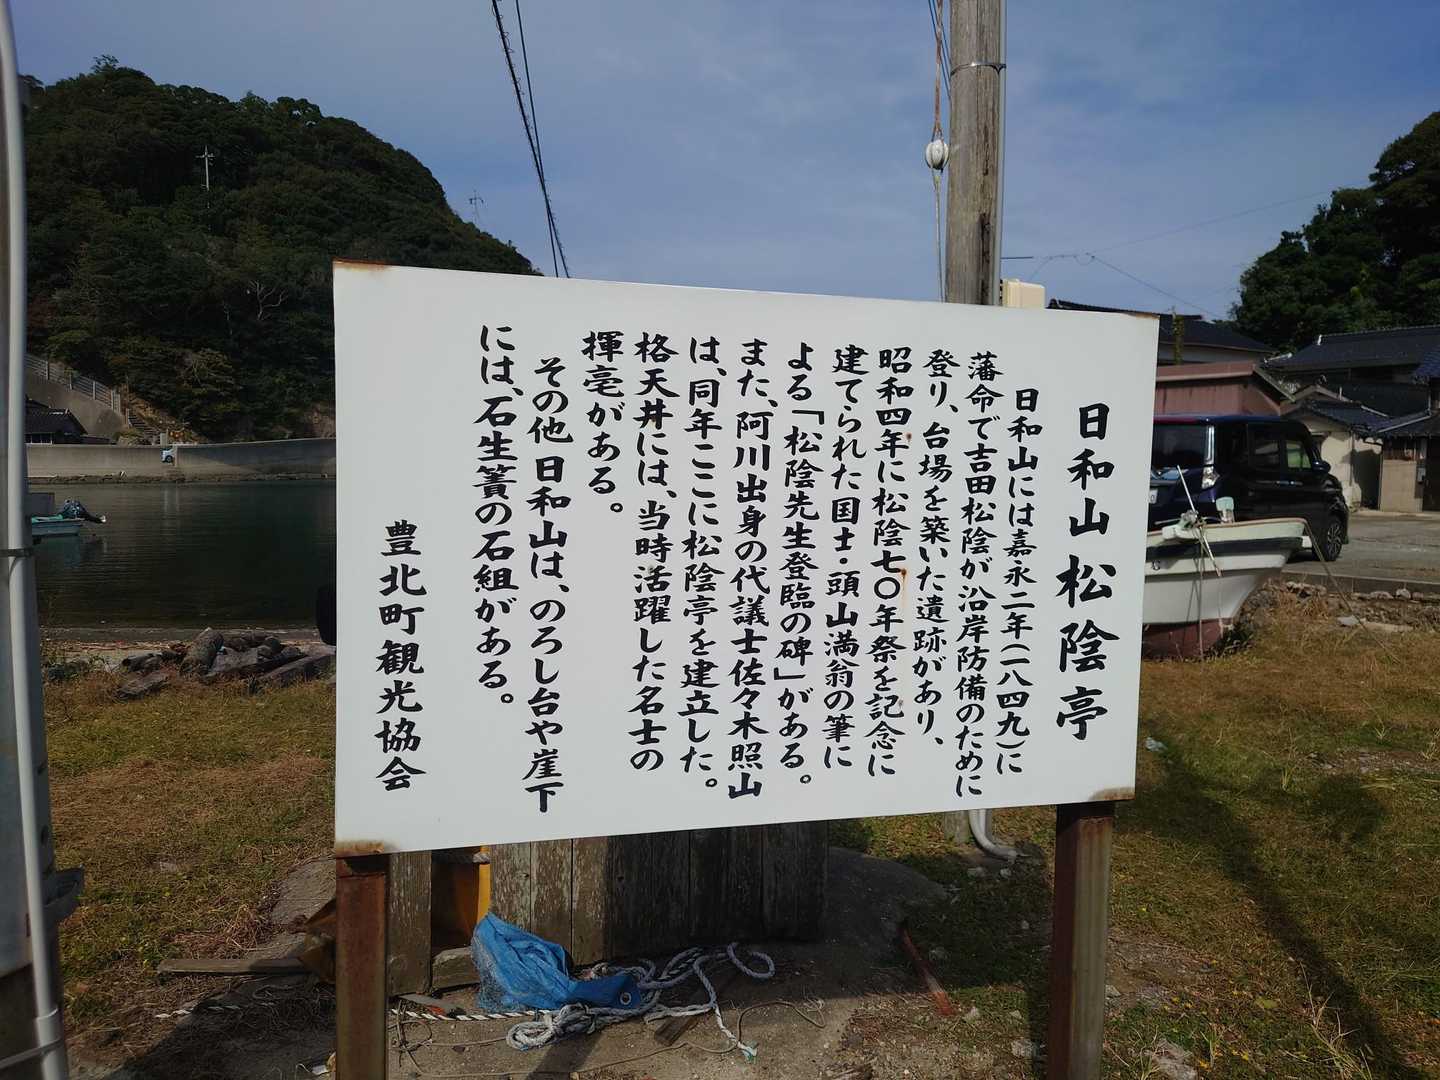 日和山松陰亭
日和山には嘉永二年(一八四九)に
藩命で吉田松陰が沿岸防備のために
登り、台場を築いた遺跡があり、
昭和四年に松陰七〇年祭を記念に
建てられた国士・頭山満翁の筆に
よる「松陰先生登臨の碑」がある。
また、阿川出身の代議士佐々木照山
は、同年ここに松陰亭を建立した。
格天井には、当時活躍した名士の
揮毫がある。
その他日和山は、のろし台や崖下
には、石生簀の石組がある。
豊北町観光協会